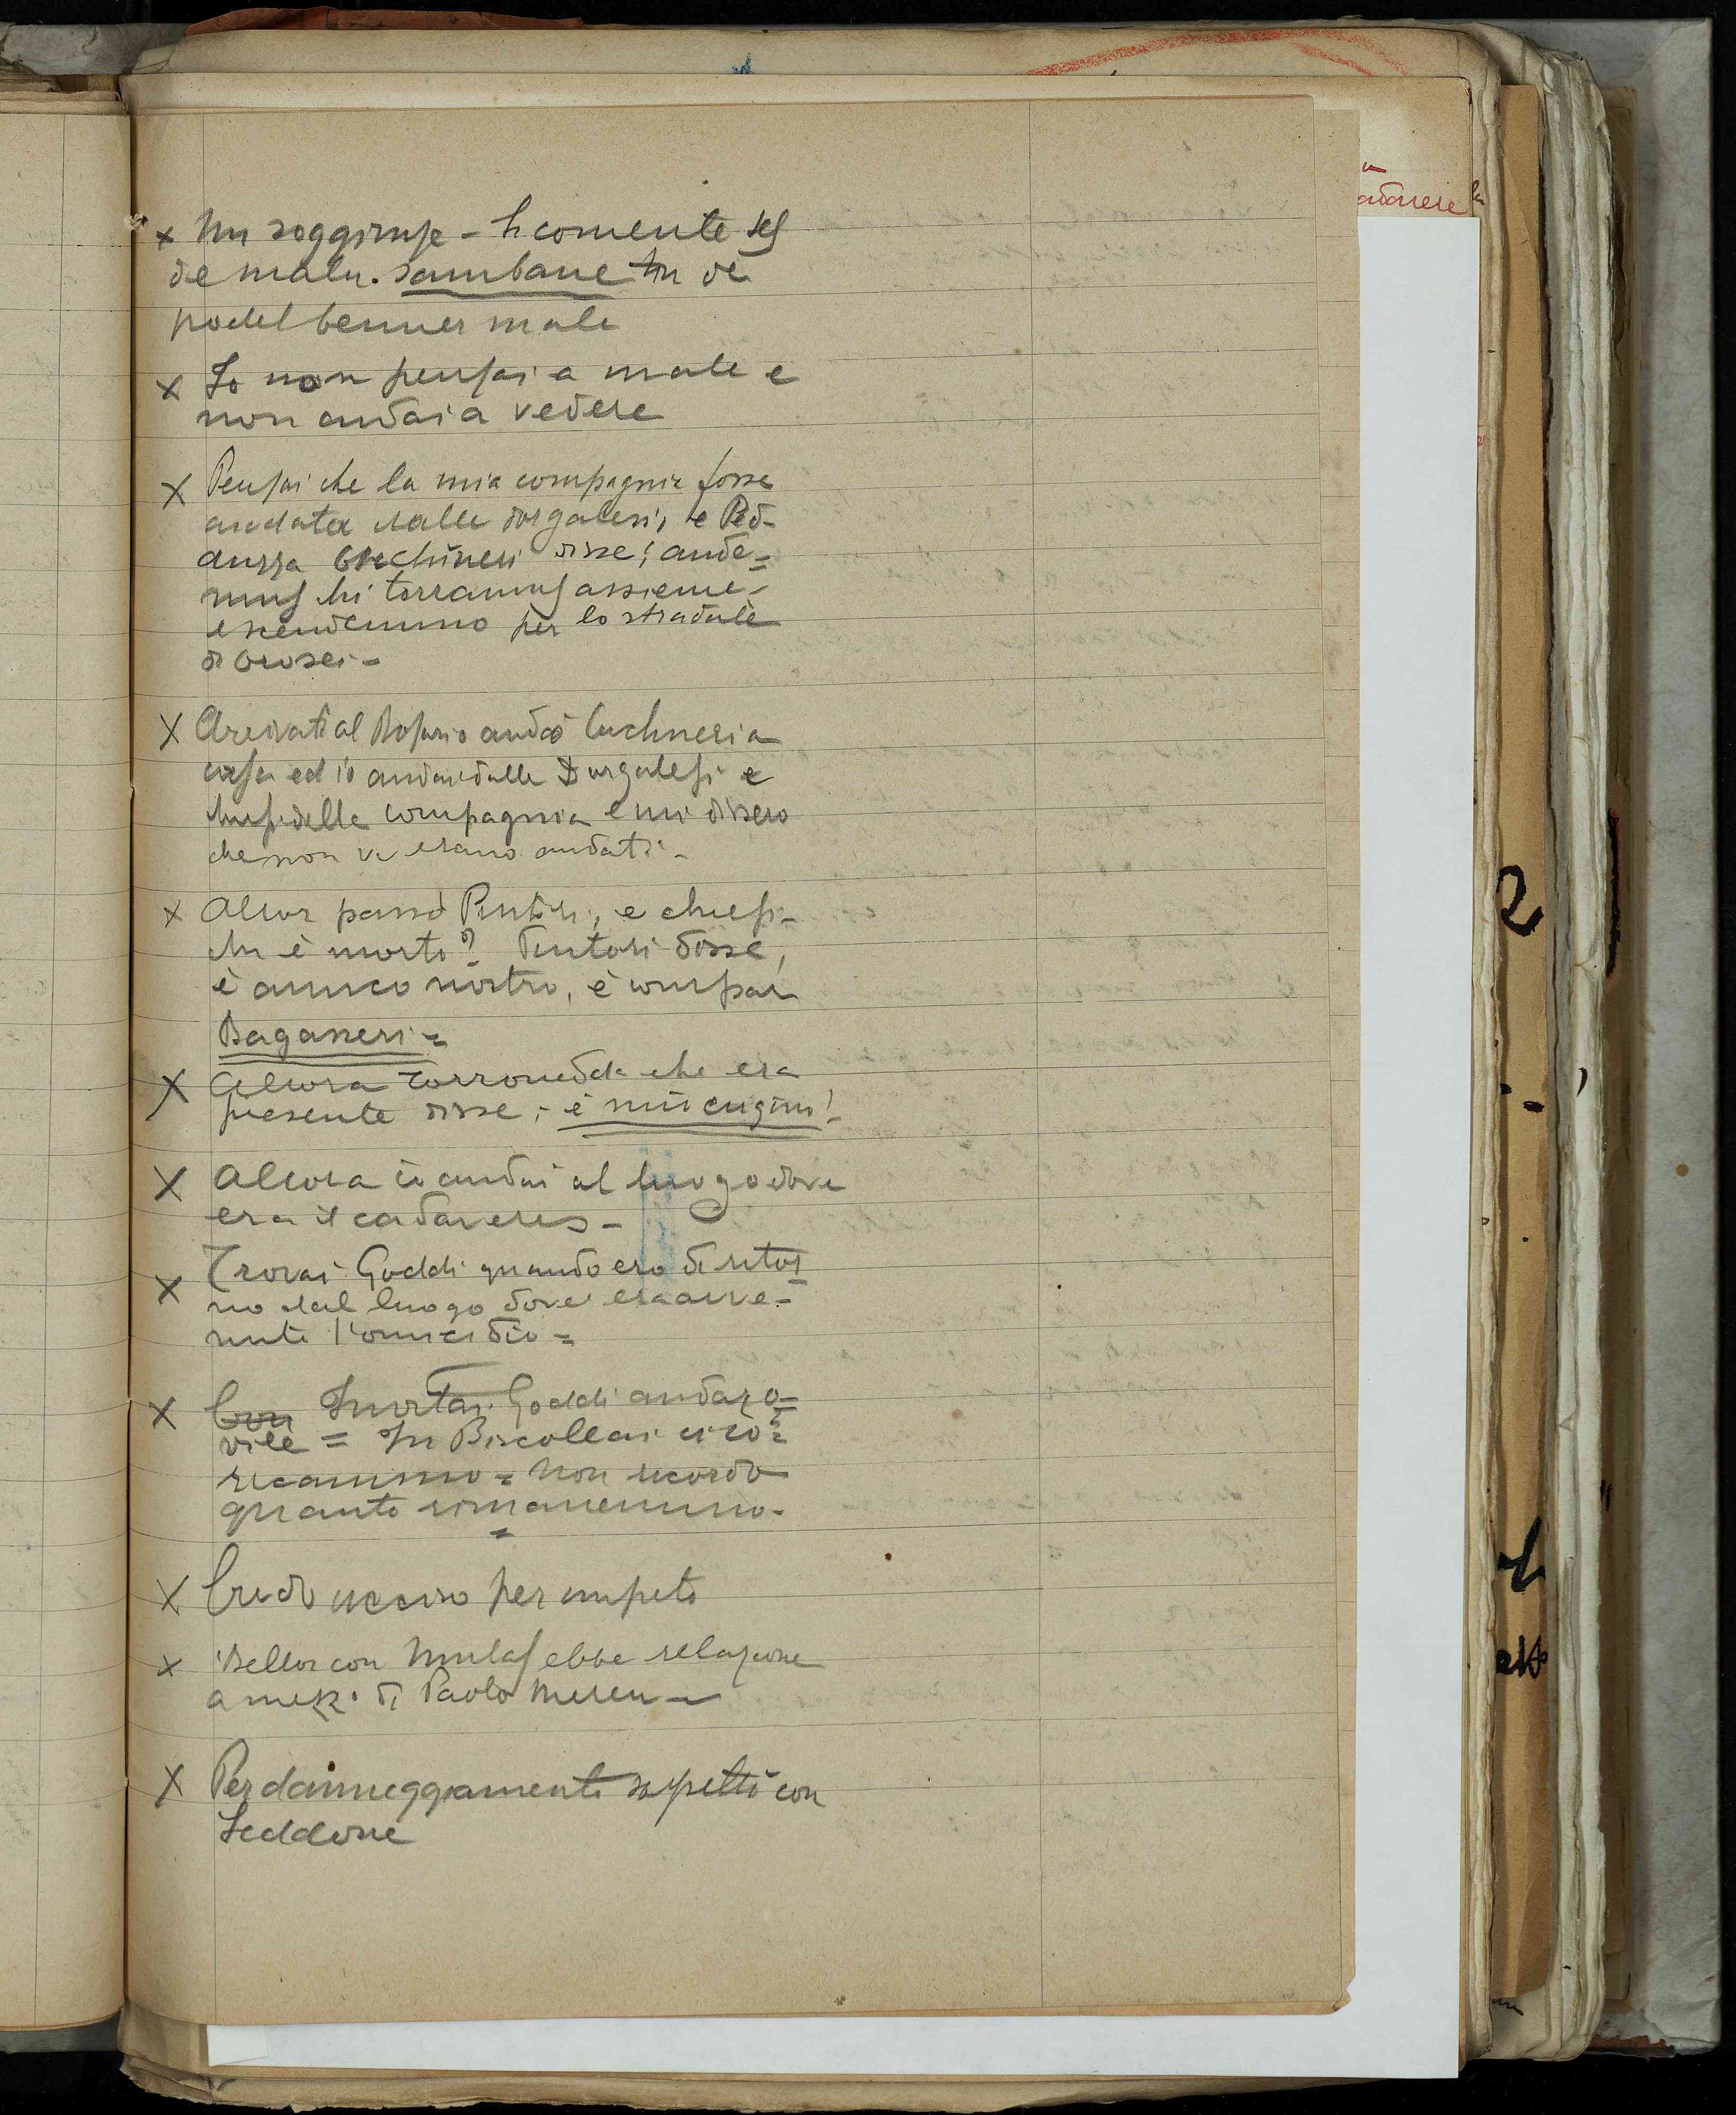 x Mi soggiunse - li comente ses
de malu. Sambane tu de
podet benner male
x Io non pensai a male e
non andai a vedere
x Pensai che la mia compagnia fosse
andata dalle dorgalesi, e Ped-
disse; ande=
mus chi torramus assieme -
e scendemmo per lo stradale
di Orosei -
x Arrivati al Rosario andò Cuchineri a
casa ed io andai dalle Dorgalesi e
chiesi delle compagnia e mi dissero
che non vi erano andati -
x Allor passò Pintori, e chiesi -
chi è morto? Pintori disse,
è amico nostro, è compar
Bagasseri =
x Allora Corronedda che era
presente disse; - è miu cuginu!
x Allora io andai al luogo dove
era il cadavere -
x Trovai Goddi quando ero di ritor
no dal luogo dove era avve-
nuto l'omicidio =
x Con Invitai Goddi and a
ovile = In Biscollai ci co=
ricammo = Non ricordo
quanto rimanemmo -
x Credo ucciso per impeto
x Sellor con Mulas ebbe relazione
a mezzo di Paolo Mereu -
x Per danneggiamento sospettò con
Leddone
adavere